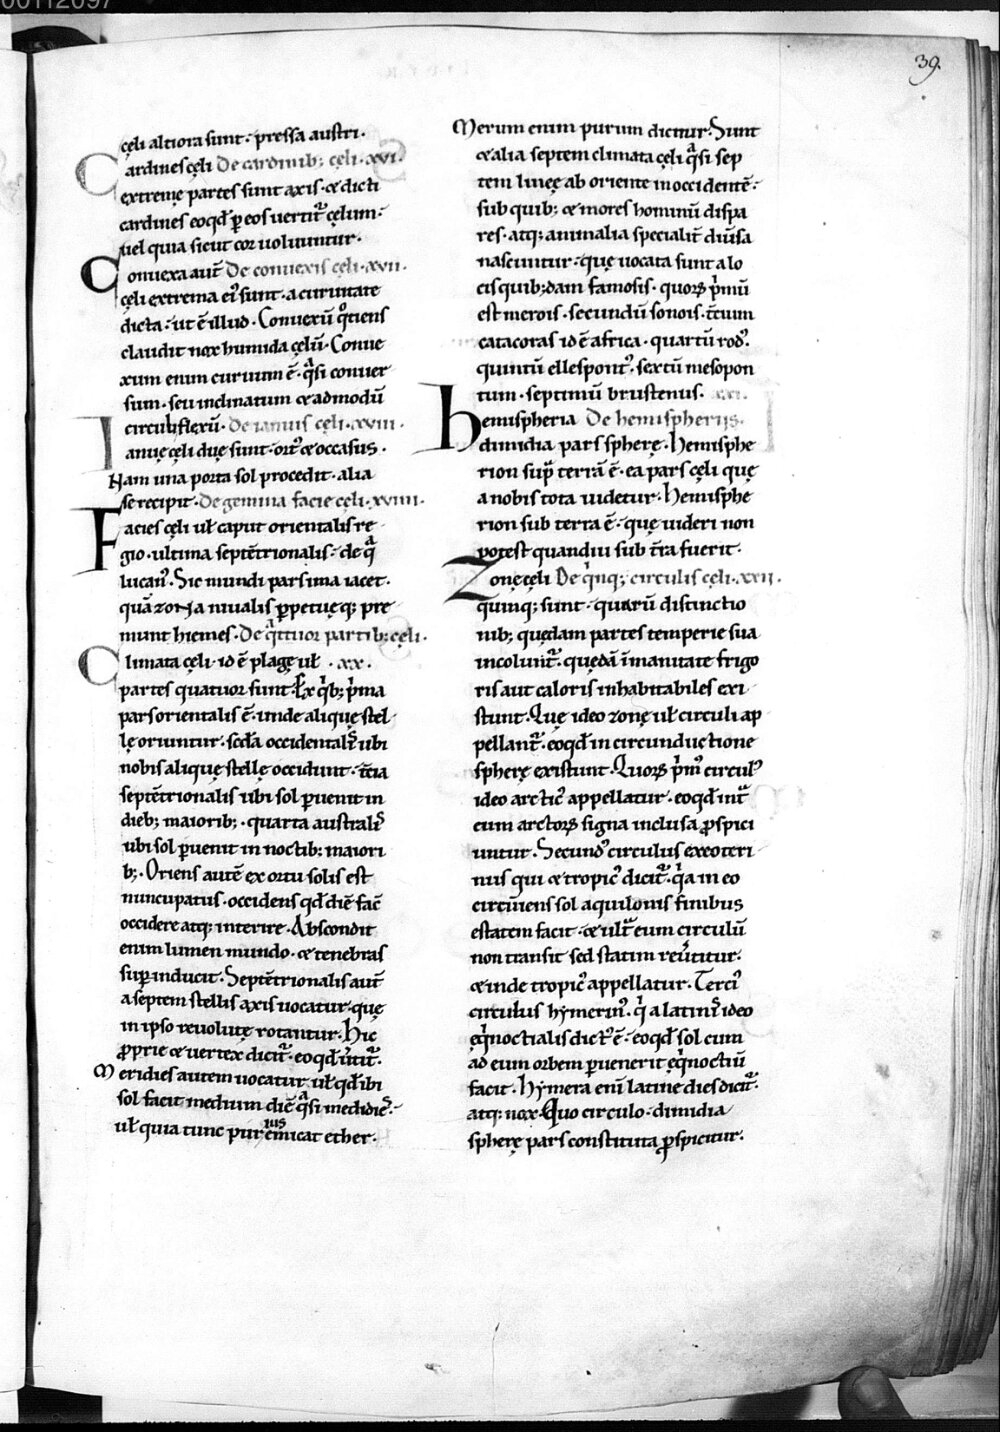 00112097
39.
cęli altiora sunt· pressa austri·
Cardines cęli De cardinib; cęli· xvi·
extremę partes sunt axis· & dicti
cardines eo qđ ꝑ eos vertit᷑ cęlum·
uel quia sicut cor uoluuntur·
Conuexa aut̄ De conuexis cęli· xvii·
cęli extrema ei᷒ sunt· a curuitate
dicta· ut ē illud· Conuexū q°tiens
claudit nox humida cęlū· Conue
xum enim curuum ē· qͣsi conuer
sum· seu inclinatum & ad modū
circuli flexū· De ianuis cęli· xviii·
Ianuę cęli duę sunt· ort᷒ & occasus·
Nam una porta sol procedit· alia
se recipit· De gemina facie cęli· xviiii·
Facies cęli uł caput orientalis re
gio· ultima septētrionalis· de qͣ
lucan᷒· Sic mundi pars ima iacet·
quā zona niualis ꝑpetuęq; pre
munt hiemes· De qͣttuor partib; cęli·
Climata cęli· id ē plagę uł · xx·
partes quatuor sunt· Ex qͥb; pͥma
pars orientalis ē· unde alique stel
lę oriuntur· scđa occidentalis ubi
nobis alique stellę occidunt· t̄cia
septētrionalis ubi sol ꝑuenit in
dieb; maiorib;· quarta australis
ubi sol ꝑuenit in noctib; maiori
b;· Oriens autē ex ortu solis est
nuncupatus· occidens qđ diē fac̄
occidere atq; interire· Abscondit
enim lumen mundo· & tenebras
suꝑinducit· Septētrionalis aut̄
a septem stellis axis uocatur· quę
in ipso reuolutę rotantur· Hic
ꝓprie & uertex dicit᷑· eo qđ ūtit᷑·
Meridies autem uocatur uł qđ ibi
sol facit medium diē qͣsi medidiēs·
uł quia tunc purius emicat ether·
Merum enim purum dicitur· Sunt
& alia septem climata cęli qͣsi sep
tem lineę ab oriente in occidentē·
sub quib; & mores hominū dispa
res· atq; animalia specialit̄ diūsa
nascuntur· quę uocata sunt a lo
cis quib;dam famosis· quoꝝ pͥmū
est merois· secundū sonois· t̄cium
catacoras id ē africa· quartū rod᷒·
quintū ellespont᷒· sextū mesopon
tum· septimū brustenus· xxi·
Hemispheria De hemispheriis·
dimidia pars spherę· Hemisphe
rion supͣ terrā ē· ea pars cęli quę
a nobis tota uidetur· Hemisphe
rion sub terra ē· quę uideri non
potest quandiu sub t̄ra fuerit·
Zonę cęli De qͥnq; circulis cęli· xxii·
quinq; sunt· quarū distinctio
nib; quędam partes temperie sua
incolunt᷑· quędā īmanitate frigo
ris aut caloris inhabitabiles exi
stunt· Quę ideo zonę uł circuli ap
pellant᷑· eo qđ in circunductione
spherę existunt· Quoꝝ pͥm᷒ circul᷒
ideo arctic᷒ appellatur· eo qđ intͣ
eum arctoꝝ signa inclusa ꝓspici
untur· Secund᷒ circulus exeoteri
nus qui & tropic᷒ dicit᷑· qͥa in eo
circūiens sol aquilonis finibus
estatem facit· & ultͣ eum circulū
non transit sed statim reūtitur·
& inde tropic᷒ appellatur· Terci᷒
circulus hymerin᷒· qͥ a latinis ideo
eqͥnoctialis dict᷒ ē· eo qđ sol cum
ad eum orbem ꝑuenerit eqͥnoctiū
facit· Hymera enī latine dies dicit᷑·
atq; nox· Quo circulo· dimidia
spherę pars constituta ꝓspicitur·